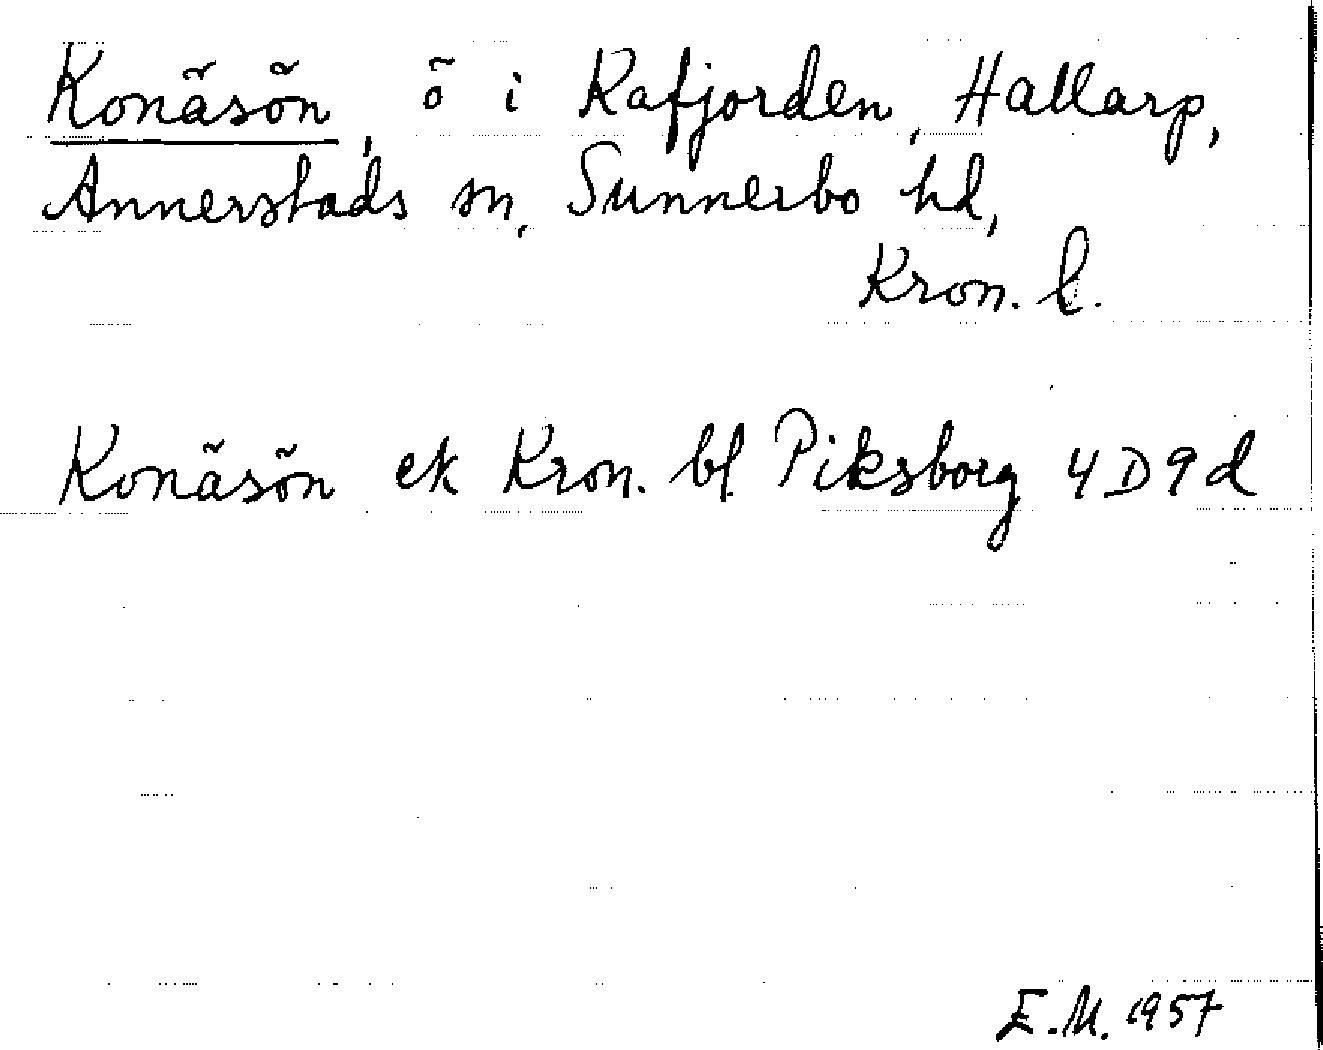 Konäsön, ö i Rafjorden, Hallarp,
Annerstads sn, Sunnerbo hd,
Kron. l.
Konäsön ek Kron. bl Piksborg 4D9d
E.M. 1957